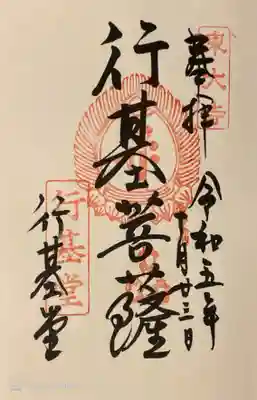 東大寺
奉拝
令和五年
十月廿三日
行基菩薩
行基堂
行基堂